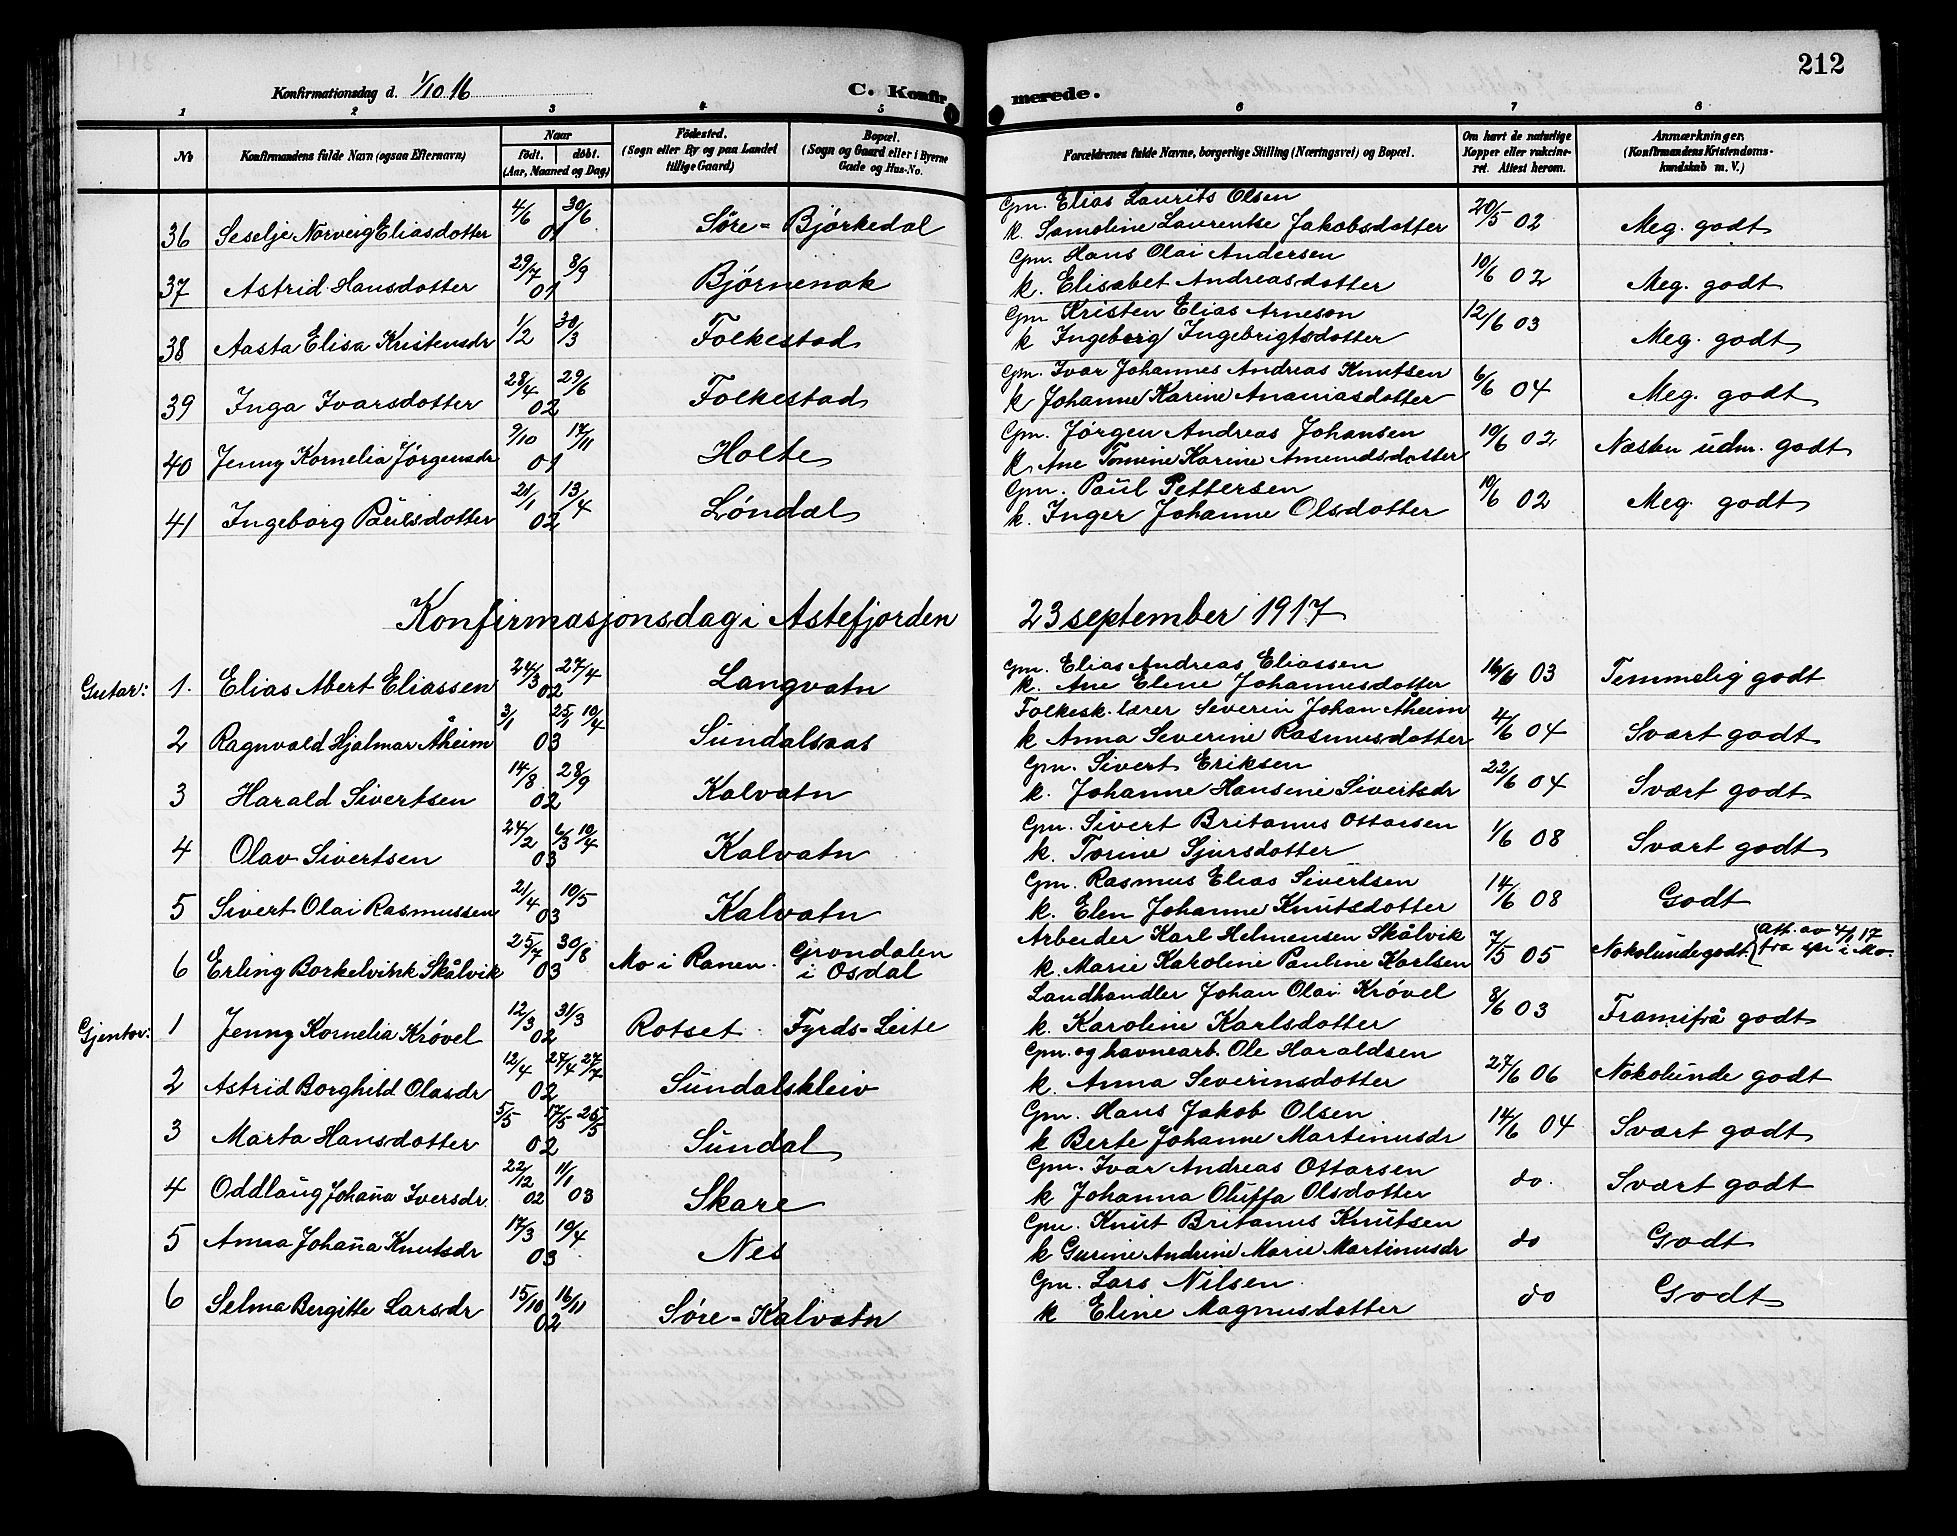 212
Konfirmationsdag d. 1/10 16 C. Konfirmerede.
1 2 3 4 5 6 7 8
No Konfirmandens fulde Navn (ogsaa Efternavn) Naar født. døbt. (Aar, Maaned og Dag) Fødested. (Sogn eller By og paa Landet tillige Gaard) Bopæl. (Sogn og Gaard eller i Byerne Gade og Hus-No. Forældrenes fulde Navne, borgerlige Stilling (Næringsvei) og Bopæl. Om havt de naturlige Kopper eller vakcineret. Attest herom. Anmærkninger. (Konfirmandens Kristendomskundskab m. V.)
Gm. Elias Laurits Olsen
36 Seselje Norveig Eliasdotter 4/6 30/6 01 Søre-Bjørkedal k. Samoline Laurentse Jakobsdotter 20/5 02 Meg. godt
Gm. Hans Olai Andersen
37 Astrid Hansdotter 29/7 8/9 01 Bjørnenak k. Elisabet Andreasdotter 10/6 02 Meg. godt
Gm Kristen Elias Arneson
38 Aasta Elisa Kristensdr 1/2 30/3 Folkestad k Ingeborg Ingebrigtsdotter 12/6 03 Meg. godt
Gm. Ivar Johannes Andreas Knutsen
39 Inga Ivarsdotter 28/4 29/6 02 Folkestad k Johanne Karine Ananiasdotter 6/6 04 Meg. godt
Gm. Jørgen Andreas Johansen
40 Jenny Kornelia Jørgensdr 9/10 17/11 01 Holte k. Ane Tomine Karine Amundsdotter 10/6 02 Næsten udm. godt
Gm. Paul Pettersen
41 Ingeborg Paulsdotter 21/1 13/4 02 Løndal k. Inger Johanne Olsdotter 10/6 02 Meg. godt
Konfirmasjonsdag i Astefjorden 23 september 1917
Gm. Elias Andreas Eliassen
Gutar: 1. Elias Abert Eliassen 24/3 27/4 02 Langvatn k. Ane Eline Johannesdotter 16/6 03 Temmelig godt
Folkesk. lærer Severin Johan Åheim
2 Ragnvald Hjalmar Åheim 3/1 25/1 10/4 03 Sundalsaas k Anna Severine Rasmusdotter 4/6 04 Svært godt
Gm. Sivert Eriksen
3 Harald Sivertsen 14/8 28/9 02 Kalvatn k. Johanne Hansine Sivertsdr 22/6 04 Svært godt
Gm. Sivert Britanus Ottarsen
4 Olav Sivertsen 24/2 6/3 10/4 03 Kalvatn k. Torine Sjursdotter 1/6 08 Svært godt
Gm. Rasmus Elias Sivertsen
5 Sivert Olai Rasmussen 21/4 10/5 03 Kalvatn k. Elen Johanne Knutsdotter 14/6 08 Godt
Arbeider Karl Helmensen Skålvik
6 Erling Borkelvink Skålvik 25/7 30/8 03 Mo i Ranen. Grøndalen i Osdal k. Marie Karoline Pauline Karlsen 7/5 05 Nokolunde godt. (Att. av 4/1 17 fra spr i Mo.
Landhandler Johan Olai Krøvel
Gjentor: 1 Jenny Kornelia Krøvel 12/3 31/3 02 Rotset Fyrds-Leite k. Karoline Karlsdotter 8/6 03 Framifrå godt
Gm. og havnearb. Ole Haraldsen
2 Astrid Borghild Olasdr 12/4 24/4 27/7 02 Sundalskleiv k. Anna Severinsdotter 27/6 06 Nokolunde godt
Gm. Hans Jakob Olsen
3 Marta Hansdotter 5/5 17/5 25/5 02 Sundal k Berte Johanne Martinusdr 14/6 04 Svært godt
Gm. Ivar Andreas Ottarsen
4 Oddlaug Johana Iversdr. 22/12 02 11/1 03 Skare k Johanna Oluffa Olsdotter do. Svært godt
Gm. Knut Britanus Knutsen
5 Anna Johana Knutsdr 17/3 10/4 03 Nes k Gurine Andrine Marie Martinusdr do Godt
Gm. Lars Nilsen
6 Selma Bergitte Larsdr 15/10 16/11 02 Søre-Kalvatn k Eline Magnusdotter do Godt